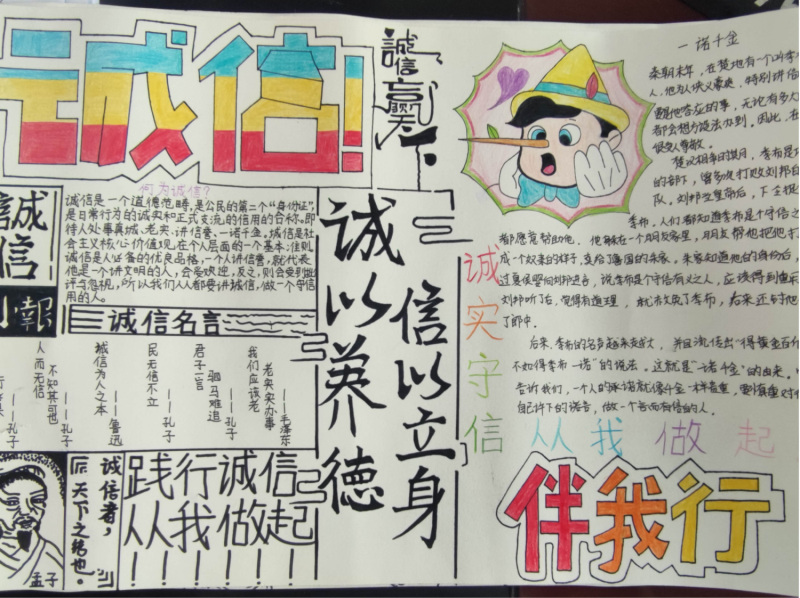 诚信!
誠信
小報
何为诚信?
诚信是一个道德范畴,是公民的第二个“身份证”,
是日常行为的诚实和正式交流的信用的合称。即
待人处事真诚、老实、讲信誉、一诺千金。诚信是社
会主义核心价值观在个人层面的一个基本准则
诚信是人必备的优良品格,一个人讲信誉,就代表
他是一个讲文明的人,会受欢迎,反之,则会受到批
评与忽视,所以我们人人都要讲诚信,做一个守信
用的人。
诚信名言
我们应该老
老实实办事
——毛泽东
君子一言
驷马难追
——孔子
民无信不立
——孔子
诚信为人之本
——鲁迅
人而无信
不知其可也
——孔子
孟子
诚信者,
天下之结也。
践行诚信
从我做起
誠信赢天下
诚以养德
信以立身
一诺千金
秦朝末年,在楚地有一个叫季
人,他为人侠义豪爽,特别讲信
要是他答应的事,无论有多大
都会想方设法办到。因此,在
很受人尊敬。
楚汉相争的其月,季布是项
的部下,曾多次打败刘邦自
队。刘邦当皇帝后,下
季布,人们都知道季布是个守信之
都愿意帮助他。
刘邦听了后,觉得有道理,
了郎中。
后来,季布的名声越来越大,并且流传出“得黄金百斤
不如得季布一诺”的说法。这就是“一诺千金”的由来,
告诉我们,一个人的承诺就像千金一样贵重,要慎重对
自己许下的诺言,做一个言而有信的人。
诚实守信
从我做起
伴我行